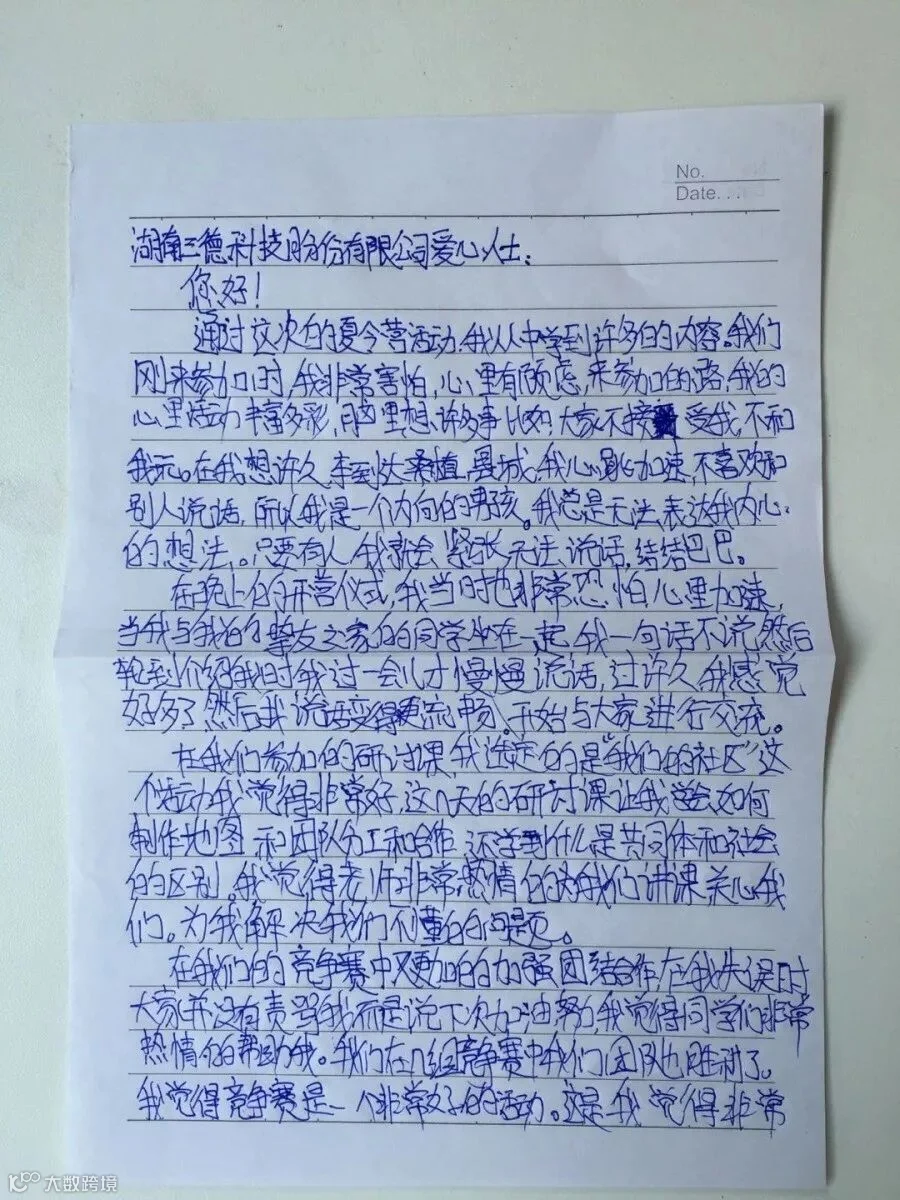 No.
Date...
湖南三德科技股份有限公司爱心人士:
您好!
通过这次的夏令营活动,我从中学到许多的的内容。我们
刚来参加时,我非常害怕,心里有顾虑,来参加的路,我的
心里活动丰富多彩,脑里想许多事比如大家不接受我,不和
我玩。在我想许久,来到大桑植,县城,我心跳加速,不喜欢和
别人说话,所以我是一个内向的男孩。我总是无法表达我内心
的想法。只要有人我就会紧张无法说话,结结巴巴。
在晚上的开营仪式,我当时也非常恐怕,心里加速,
当我与我的挚友之家的同学坐在一起,我一句话不说,然后
轮到介绍我时我过一会儿才慢慢说话,过许久我感觉
好多了然后我说话变得更流畅,开始与大家进行交流。
在我们参加的研讨课,我选定的是"我们的社区"这
个活动我觉得非常好,这几天的研讨课让我学会如何
制作地图和团队分工和合作,还学到什么是共同体和社会
的区别。我觉得老师非常热情的为我们讲课关心我
们。为我解决我们不懂的问题。
在我们的竞争赛中又更加的加强团结合作,在我失误时
大家并没有责骂我,而是说下次加油努力,我觉得同学们非常
热情的帮助我。我们在小组竞争赛中我们团队也胜利了。
我觉得竞争赛是一个非常好的活动。这是我觉得非常
大数跨境